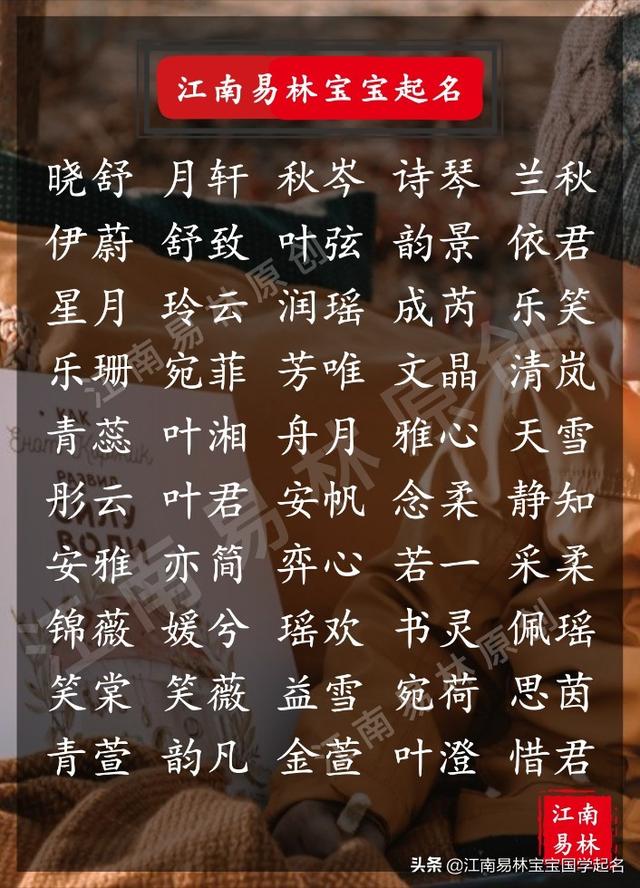 江南易林宝宝起名
晓舒 月轩 秋岑 诗琴 兰秋
伊蔚 舒致 叶弦 韵景 依君
星月 玲云 润瑶 成芮 乐笑
乐珊 宛菲 芳唯 文晶 清岚
青蕊 叶湘 舟月 雅心 天雪
彤云 叶君 安帆 念柔 静知
安雅 亦简 弈心 若一 采柔
锦薇 媛兮 瑶欢 书灵 佩瑶
笑棠 笑薇 益雪 宛荷 思茵
青萱 韵凡 金萱 叶澄 惜君
江南易林原创
江南易林原创
江南易林原创
КАК
Енот
развив
силу
воли
江南
易林
头条 @江南易林宝宝国学起名